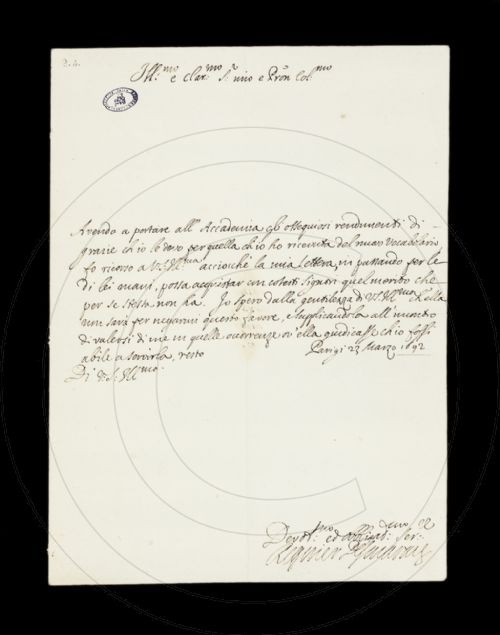 Ill:mo e Clar:mo Sr mio e Pròn Col:mo
Avendo a portare all' Accademia gli ossequiosi rendimenti di
grazie ch'io le devo per quella ch'io ho ricevuta del nuovo Vocabolario
fo ricorso a V.S. Ill:ma acciochè la mia lettera, in passando per le
di lei mani, possa acquistar con cotesti Signori quel merito che
per se stessa non ha. Io spero dalla gentilezza di V.S. Ill:ma ch'ella
non sarà per negarmi questo favore, e supplicandola all'incontro
di valersi di me in quelle occorrenze ov' ella giudicasse ch'io fossi
abile a servirla, resto
Parigi 23 Marzo 1692
Di V.S. Ill:ma
Devot:mo ed obbligat:
Regnier Desmarais